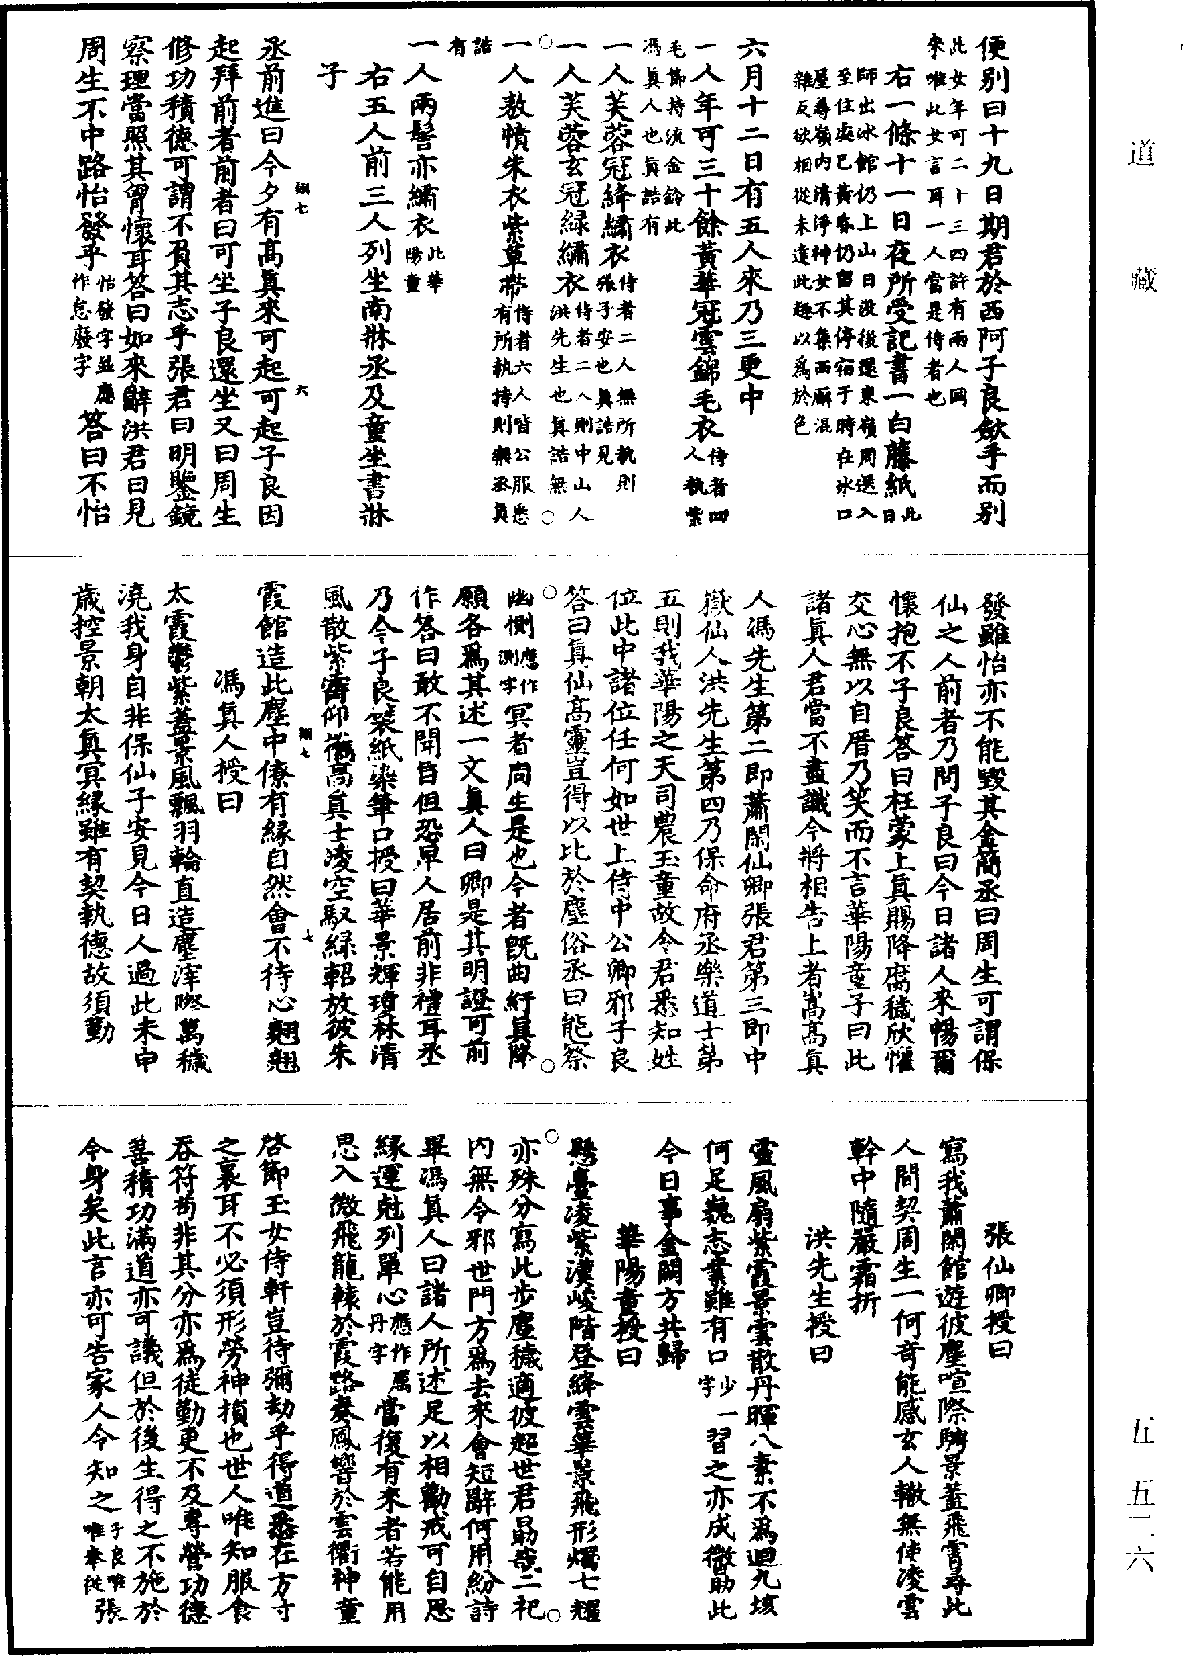 便别曰十九日期君於西阿子良斂手而别
此女年可二十三四許有兩人同
來唯此女言耳一人當是侍者也
右一條十一日夜所受記書一白藤紙此日
師出冰館仍上山日没後還東嶺周還入
至住處已黃昏仍留其停宿于時在冰口
屋尋嶺内清淨神女不集西廨混
雜反欲相從未達此趣以爲於色
六月十二日有五人來乃三更中
一人年可三十餘黃華冠雲錦毛衣侍者四人執紫
毛節持流金鈴此
馮真人也真誥有
一人芙蓉冠絳繡衣侍者二人無所執則張子安也真誥見
一人芙蓉玄冠緑繡衣侍者二人則中山人洪先生也真誥無
一人敖幘朱衣紫草帶侍者六人皆公服悉有所執持則樂丞真
誥有
一人兩髻亦繡衣此華陽童
右五人前三人列坐南牀丞及童坐書牀
子
丞前進曰今夕有高真來可起可起子良因
起拜前者前者曰可坐子良還坐又曰周生
修功積德可謂不負其志乎張君曰明鑒鏡
察理當照其胷懷耳答曰如來辭洪君曰見
周生不中路怡發乎怡發字並應作怠廢字答曰不怡
發雖怡亦不能毁其金簡丞曰周生可謂保
仙之人前者乃問子良曰今日諸人來暢爾
懷抱不子良答曰枉蒙上真賜降腐穢欣懼
交心無以自厝乃笑而不言華陽童子曰此
諸真人君當不盡識今將相告上者嵩高真
人馮先生第二即蕭閑仙卿張君第三即中
嶽仙人洪先生第四乃保命府丞樂道士第
五則我華陽之天司農玉童故令君悉知姓
位此中諸位任何如世上侍中公卿邪子良
答曰真仙高靈豈得以比於塵俗丞曰能祭
幽惻應作測字冥者尚生是也今者既曲紆真降
願各爲其述一文真人曰卿是其明證可前
作答曰敢不聞旨但恐卑人居前非禮耳丞
乃令子良襞紙染筆口授曰華景輝瓊林清
風散紫霄仰𢹂高真士凌空馭緑軺放彼朱
霞館造此塵中僚有縁自然會不待心翹翹
馮真人授曰
太霞鬱紫蓋景風飄羽輪直造塵滓際萬穢
澆我身自非保仙子安見今日人過此未申
歲控景朝太真冥縁雖有契執德故須勤
張仙卿授曰
寫我蕭閑館遊彼塵喧際騁景蓋飛霄尋此
人間契周生一何奇能感玄人轍無使凌雲
幹中隨嚴霜折
洪先生授曰
靈風扇紫霞景雲散丹暉八素不爲迴九垓
何足巍志業雖有口少一字習之亦成微勗此
今日事金闕方共歸
華陽童授曰
懸臺凌紫漢峻階登絳雲華景飛形燭七耀
亦殊分寫此步塵穢適彼超世君勗哉二祀
内無令邪世門方爲去來會短辭何用紛詩
畢馮真人曰諸人所述足以相勸戒可自思
縁運尅列單心應作厲丹字當復有來者若能用
思入微飛龍轅於霞路奏鳳響於雲衢神童
啓節玉女侍軒豈待彌劫乎得道悉在方寸
之裏耳不必須形勞神損也世人唯知服食
吞符苟非其分亦爲徒勤更不及專營功德
善積功滿道亦可議但於後生得之不施於
今身矣此言亦可告家人令知之子良唯唯奉從張
翹七
六
翹七
七
道藏
五
五二六